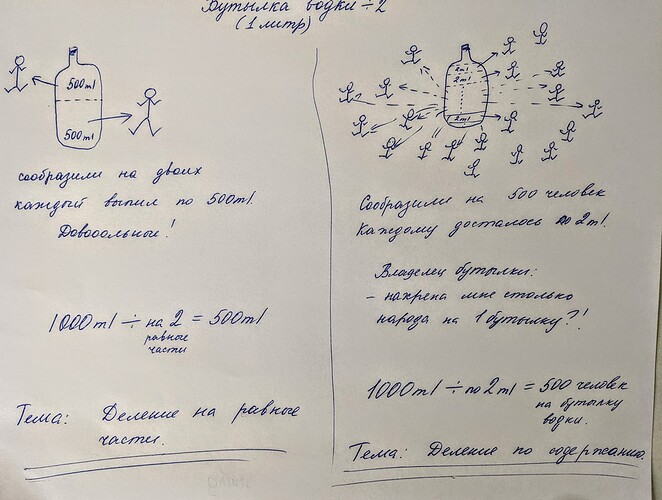 Бутылка водки ÷ 2
(1 литр)
500ml
500ml
сообразили на двоих
каждый выпил по 500ml.
Довооольные!
1000ml ÷ на 2 = 500ml
равные
части
Тема: Деление на равные
части.
2ml
2ml
2ml
Сообразили на 500 человек
Каждому досталось по 2ml.
Владелец бутылки:
- нахрена мне столько
народа на 1 бутылку?!
1000ml ÷ по 2ml = 500 человек
на бутылку
водки.
Тема: Деление по содержанию